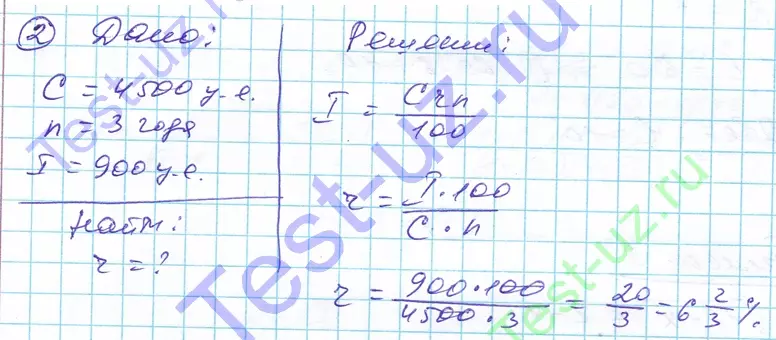 ② Дано:
C = 4500 у.е.
n = 3 года
I = 900 у.е.
найти:
r = ?
Решение:
I = Crn / 100
r = I · 100 / C · n
r = 900 · 100 / 4500 · 3 = 20 / 3 = 6 2/3 %
Test-uz.ru
Test-uz.ru
Test-uz.ru